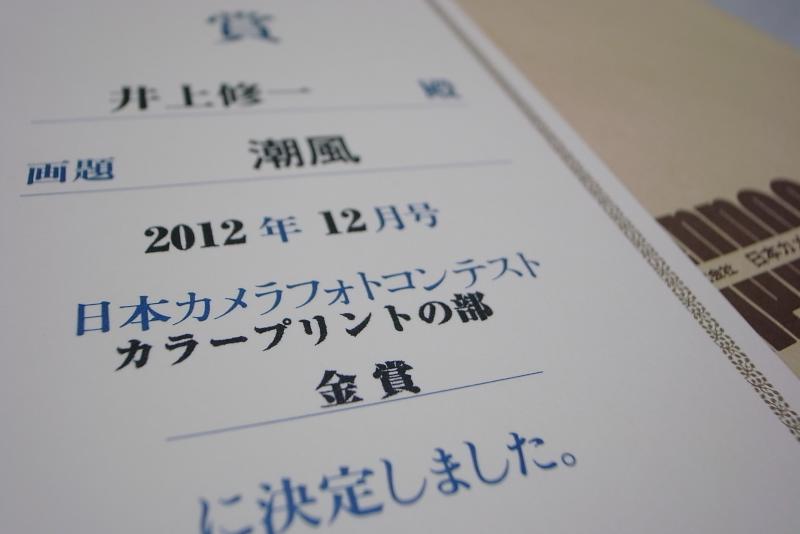 賞
井上修一 殿
画題 潮風
2012年12月号
日本カメラフォトコンテスト
カラープリントの部
金賞
に決定しました。
日本カメ